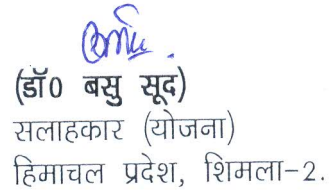 (डॉ0 बसु सूद)
सलाहकार (योजना)
हिमाचल प्रदेश, शिमला-2.